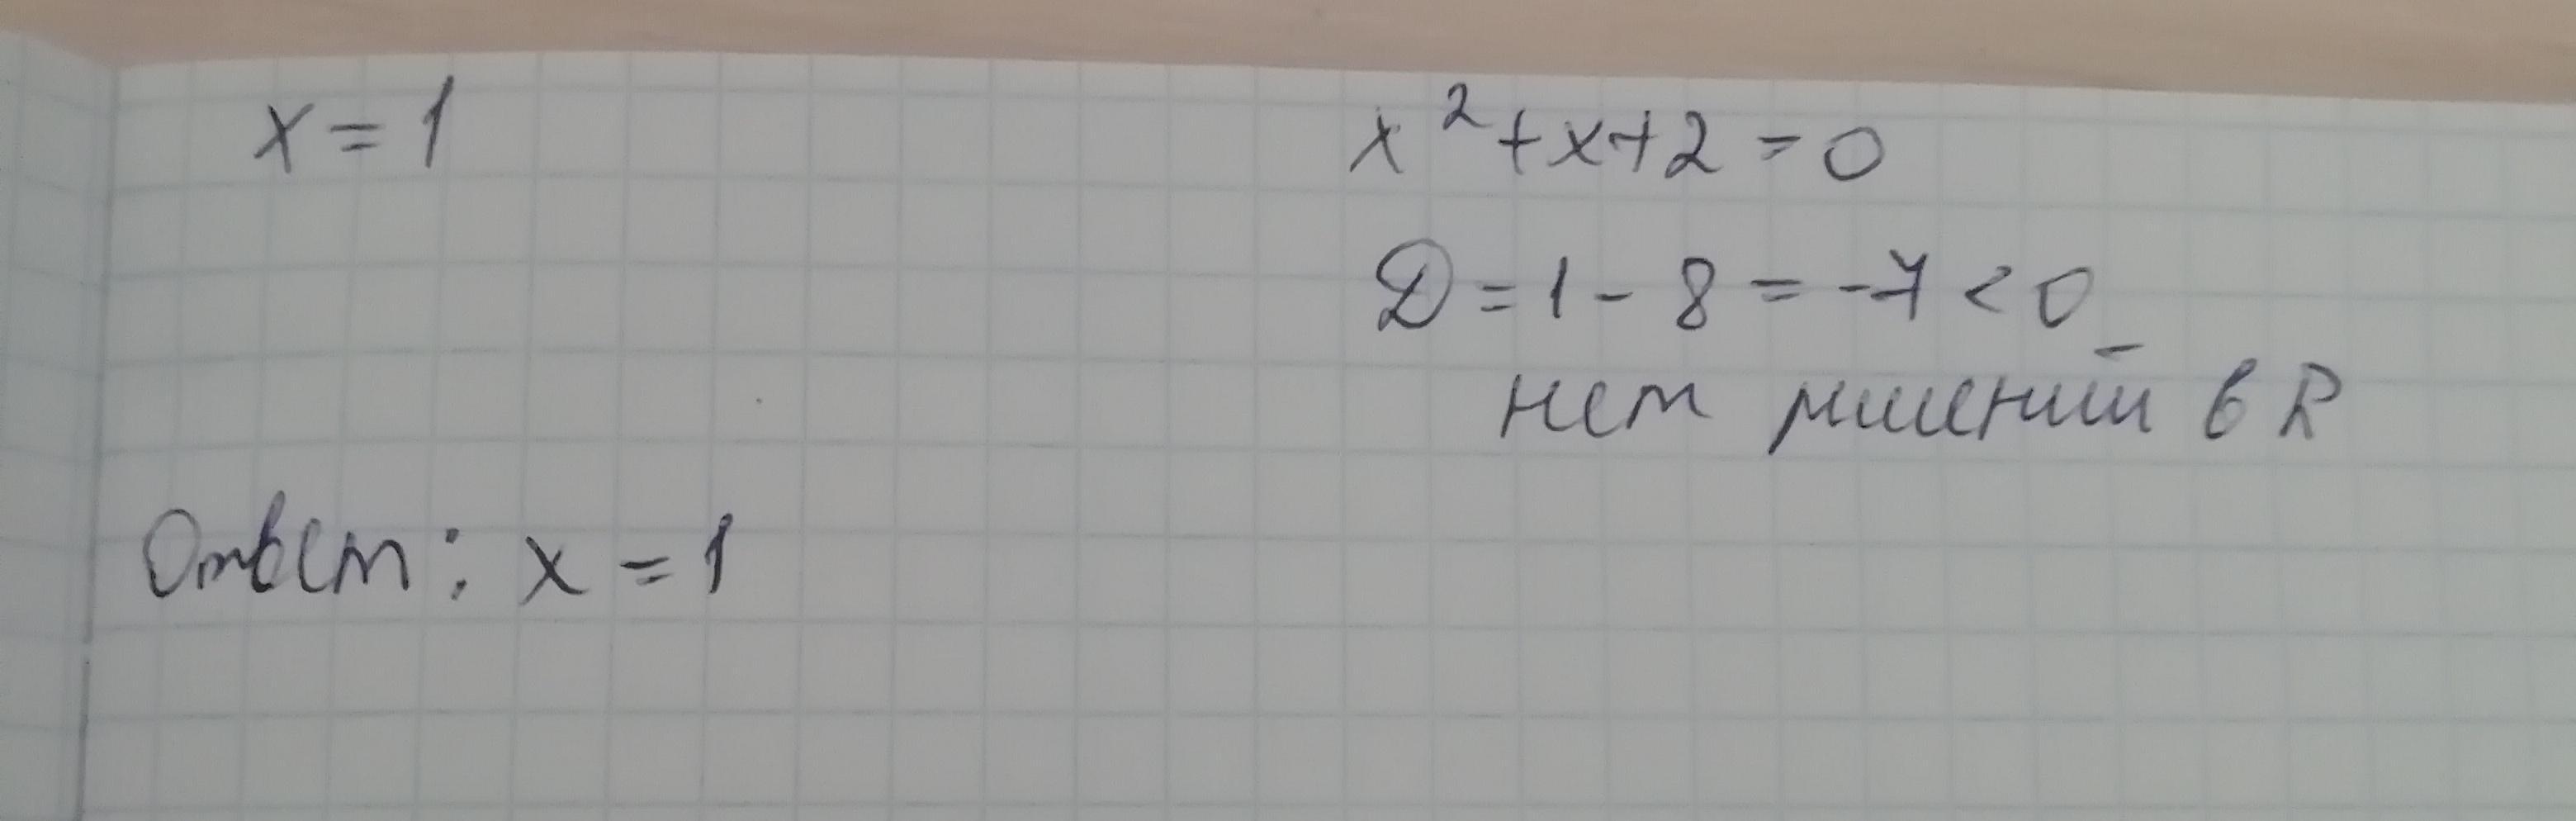 x = 1
x² + x + 2 = 0
D = 1 - 8 = -7 < 0
нет решений в R
Ответ: x = 1